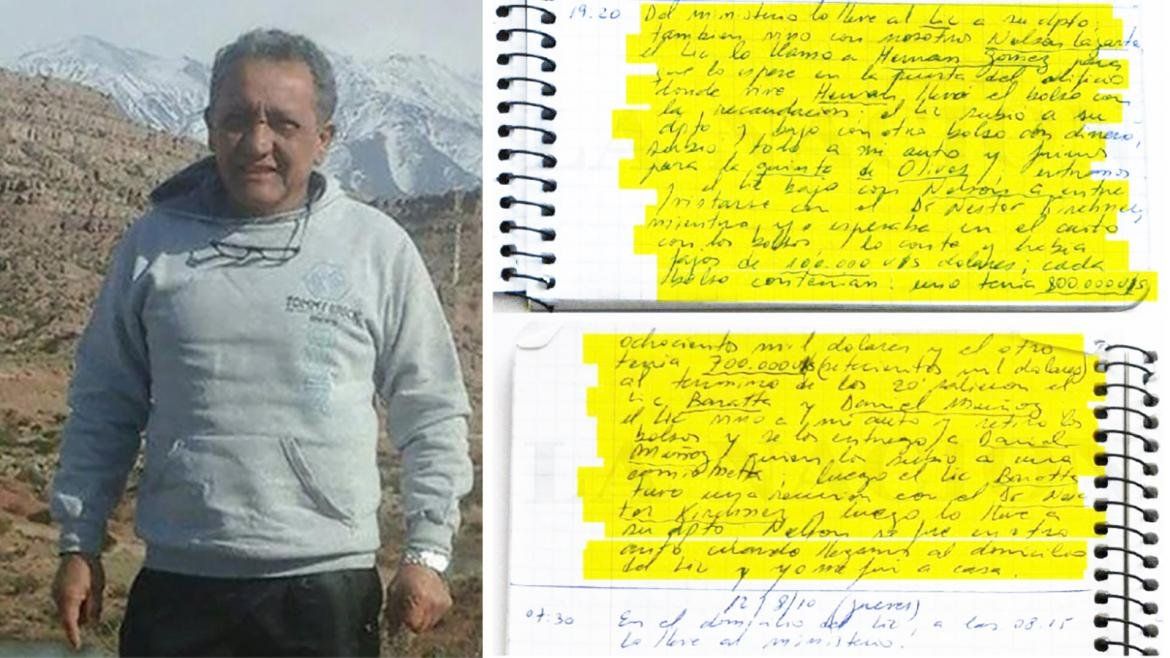 TOMMY
19.20 Del ministerio lo lleve al Lic a su dpto;
tambien vino con nosotros Nelson Lazarte,
el Lic lo llamo a Hernan Gomez para
que lo espere en la puerta del edificio
donde vive Hernan llevó el bolso con
la recaudacion; el Lic subio a su
dpto y bajo con otro bolso con dinero,
subio todo a mi auto y fuimos
para la quinta de Olivos y entramos
el Lic bajo con Nelson a entre
vistarse con el Dr Nestor Kirchner,
mientras yo esperaba en el auto
con los bolsos lo conte y habia
fajos de 100.000 U$S dolares; cada
bolso contenian: uno tenia 800.000 U$S
ochociento mil dolares y el otro
tenia 700.000 U$S (setecientos mil dolares)
al termino de los 20' salieron el
Lic Baratta y Daniel Muñoz
el Lic vino a mi auto y retiro los
bolsos y se los entrego a Daniel
Muñoz quien los subio a una
camioneta; luego el Lic Baratta
tuvo una reunion con el Dr Nes
tor Kirchner y luego lo lleve a
su dpto Nelson se fue en otro
auto cuando llegamos al domicilio
del Lic y yo me fui a casa.
12/8/10 (jueves)
07:30 En el domicilio del Lic, a las 08.15
lo lleve al ministerio.